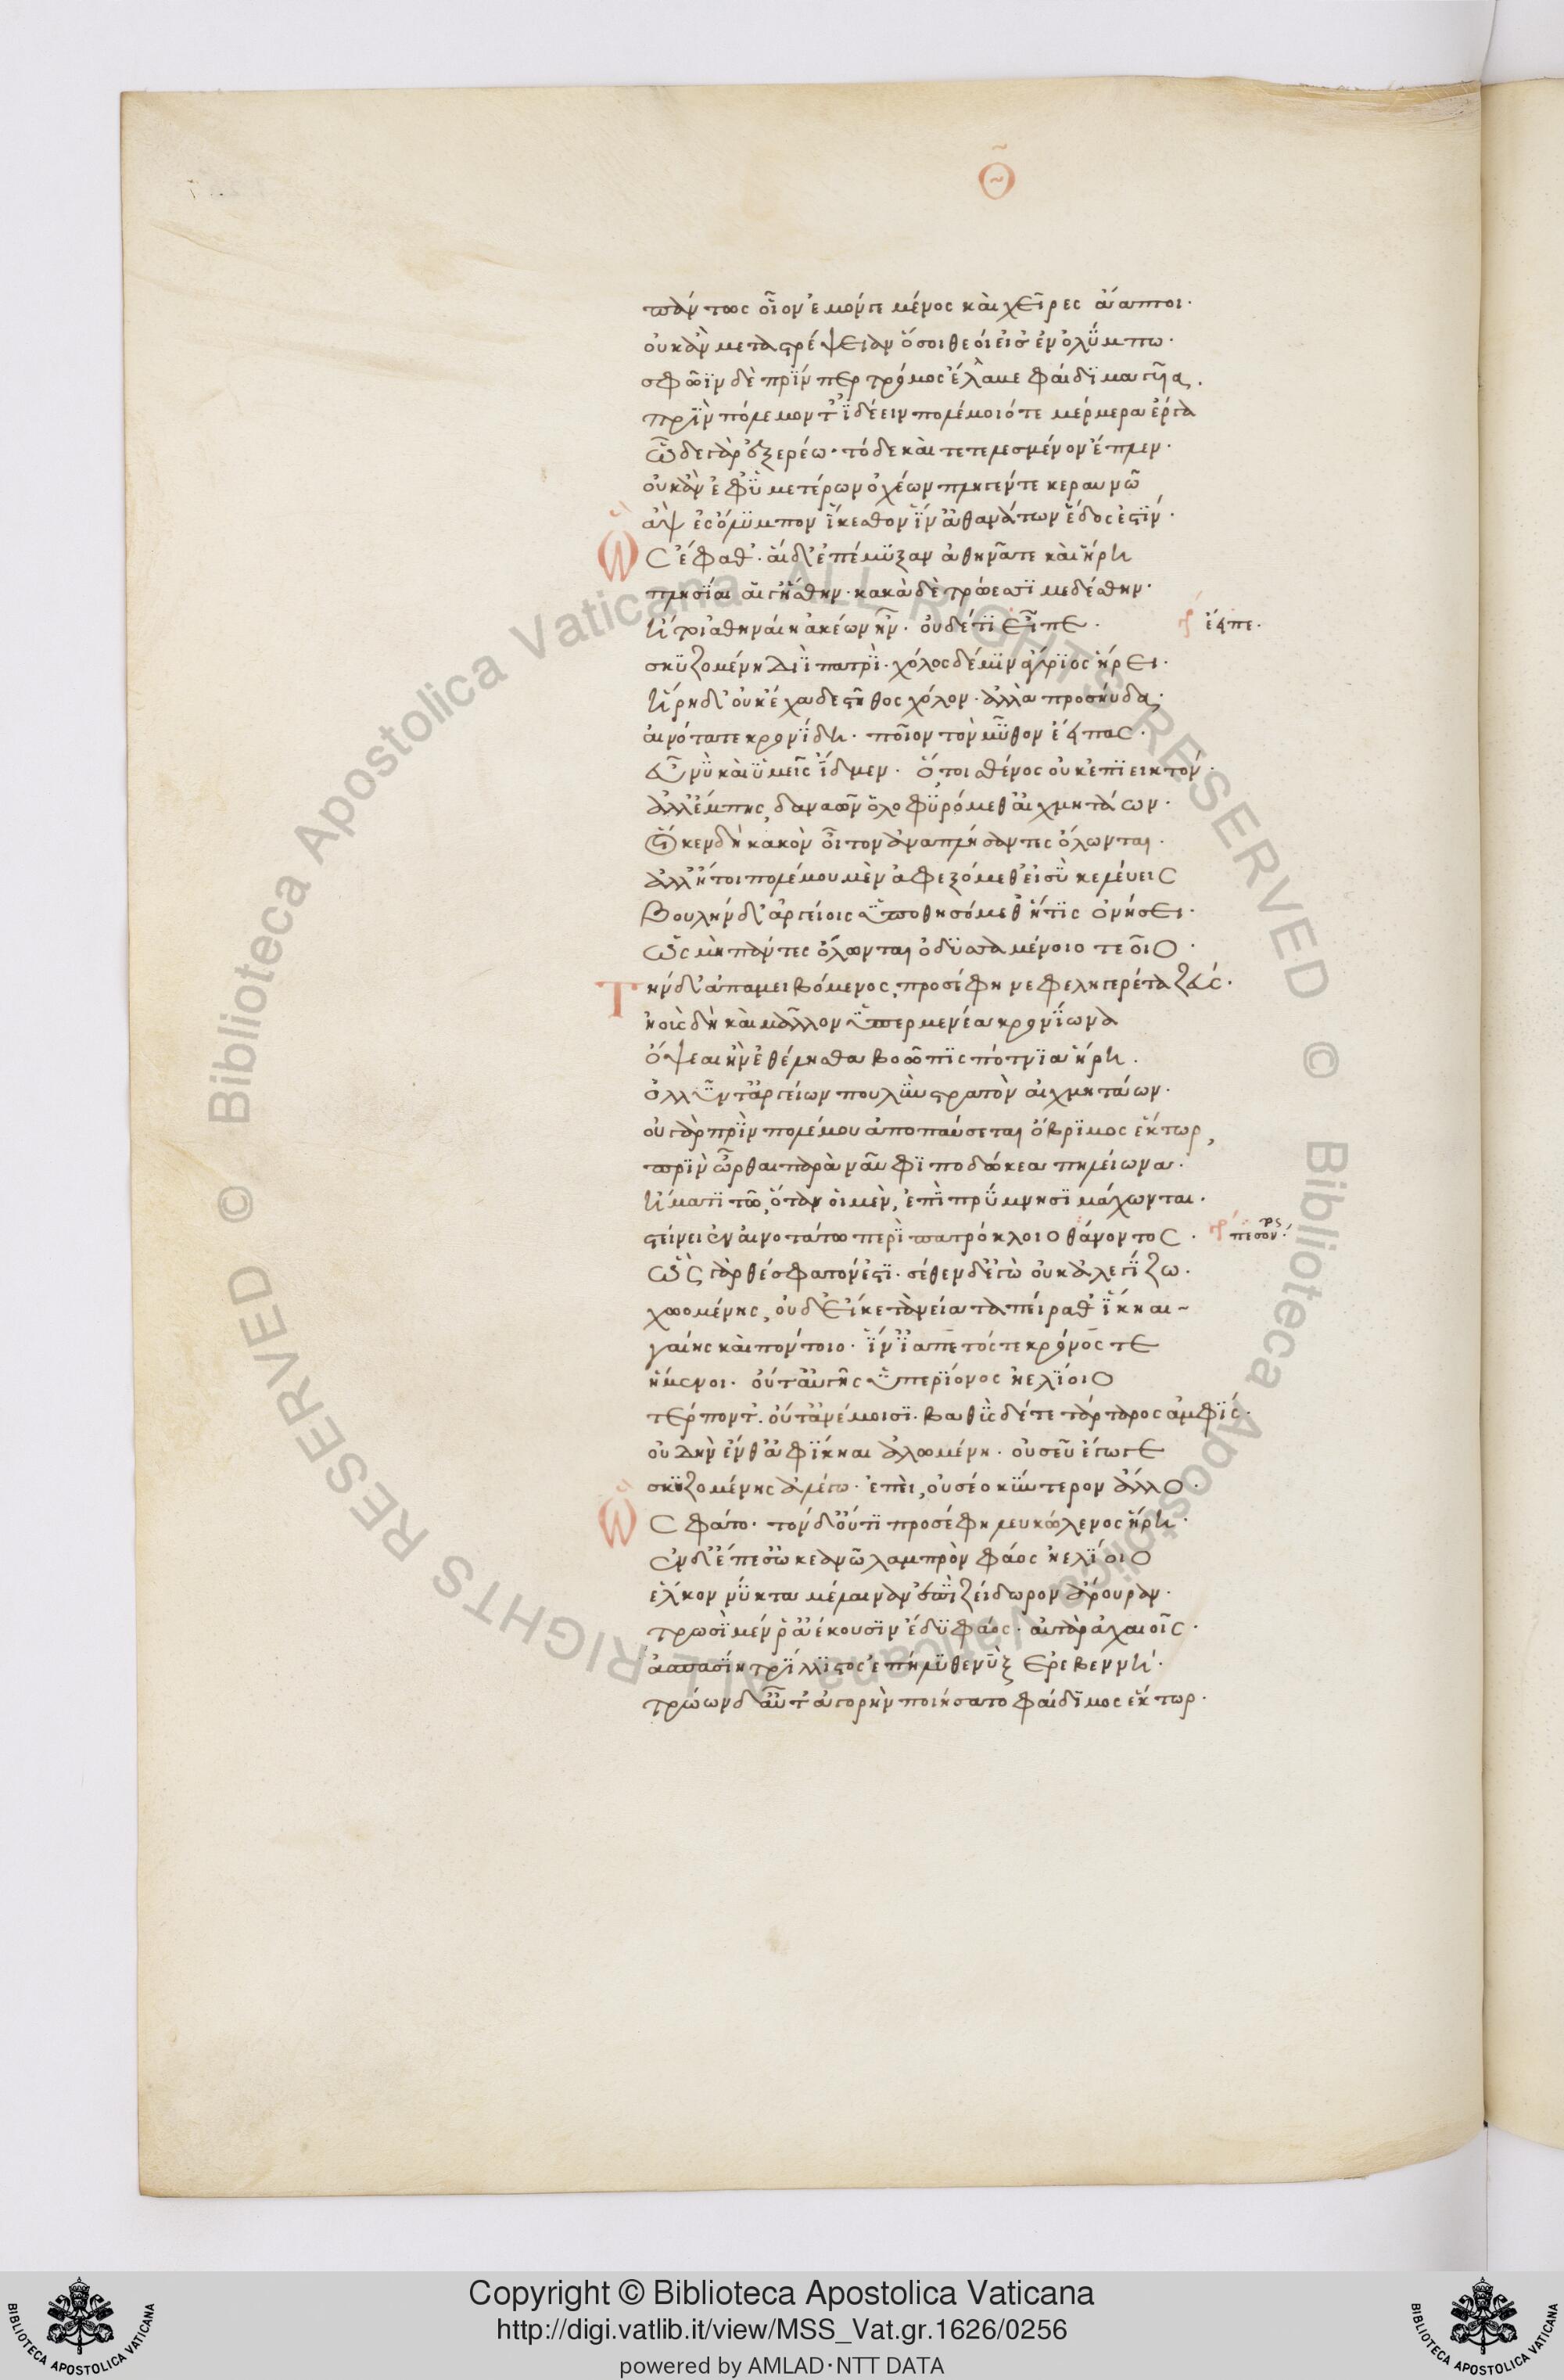 Θ
πάντως οἷον ἐμόν γε μένος καὶ χεῖρες ἄαπτοι·
οὐκ ἂν με τρέψειαν ὅσοι θεοί εἰσ' ἐν ὀλύμπω·
σφῶϊν δὲ πρίν περ τρόμος ἔλλαβε φαίδιμα γυῖα.
πρὶν πόλεμον τ' ἰδέειν πολέμοιό τε μέρμερα ἔργα
ὧδε γὰρ ἐξερέω· τόδε καὶ τετελεσμένον ἔπλεν·
οὐκ ἂν ἐφ' ὑμετέρων ὀχέων πληγέντε κεραυνῶ
ἂψ ἐς ὄλυμπον ἵκεσθον ἵν' ἀθανάτων ἕδος ἐστίν·
Ὣς ἔφαθ'· αἱ δ' ἐπέμυξαν ἀθηναῖτε καὶ ἥρη
πλησίαι αἵ γ' ἥσθην· κακὰ δὲ τρώεσσι μεδέσθην·
ἤτοι ἀθηναίη ἀκέων ἦν· οὐδέ τι εἶπε·
γρ ἔειπε·
σκυζομένη Διῒ πατρί· χόλος δέ μιν ἄγριος ἥρει·
ἥρη δ' οὐκ ἔχαδε στῆθος χόλον· ἀλλὰ προσηύδα·
αἰνότατε κρονίδη· ποῖον τὸν μῦθον ἔειπας·
εὖ νυ καὶ ὑμεῖς ἴδμεν· ὅ τοι σθένος οὐκ ἐπιεικτόν·
ἀλλ' ἔμπης, δαναῶν ὀλοφυρόμεθ' αἰχμητάων·
οἵ κεν δὴ κακὸν οἶτον ἀναπλήσαντες ὄλωνται·
ἀλλ' ἤτοι πολέμου μὲν ἀφεξόμεθ' εἰ σὺ κελεύεις
βουλὴν δ' ἀργείοις ὑποθησόμεθ' ἥτις ὀνήσει·
ὡς μὴ πάντες ὄλωνται ὀδυσσαμένοιο τεοῖο·
Τὴν δ' ἀπαμειβόμενος, προσέφη νεφεληγερέτα ζεύς·
ἠοῖς δὴ καὶ μᾶλλον ὑπερμενέα κρονίωνα
ὄψεαι ἢν ἐθέλησθα βοῶπις πότνια ἥρη·
ὀλλῦντ' ἀργείων πουλὺν στρατὸν αἰχμητάων·
οὐ γὰρ πρὶν πολέμου ἀποπαύσεται ὄβριμος ἕκτωρ,
πρὶν ὦρθαι παρὰ ναῦφι ποδώκεα πηλείωνα·
ἤματι τῶ, ὅταν οἱ μὲν, ἐπὶ πρύμνησι μάχωνται·
στείνει ἐν αἰνοτάτω περὶ πατρόκλοιο θανόντος·
γρ πεσόντος·
ὣς γὰρ θέσφατον ἐστι· σέθεν δ' ἐγὼ οὐκ ἀλεγίζω·
χωομένης, οὐδ' εἴ κε τὰ νείατα πείραθ' ἵκηαι
γαίης καὶ πόντοιο· ἵν' ἰαπετός τε κρόνος τε
ἥμενοι· οὔτ' αὐγῆς ὑπερίονος ἠελίοιο
τέρποντ'· οὔτ' ἀνέμοισι· βαθὺς δέ τε τάρταρος ἀμφίς·
οὐδ' ἢν ἔνθ' ἀφίκηαι ἀλωμένη· οὐ σεῦ ἔγωγε
σκυζομένης ἀλέγω· ἐπεὶ, οὐ σέο κύντερον ἄλλο·
Ὣς φάτο· τὸν δ' οὔτι προσέφη λευκώλενος ἥρη·
ἐν δ' ἔπεσ' ὠκεανῶ λαμπρὸν φάος ἠελίοιο
ἕλκον νύκτα μέλαιναν ἐπὶ ζείδωρον ἄρουραν·
τρωσὶ μέν ῥ' ἀέκουσιν ἔδυ φάος· αὐτὰρ ἀχαιοῖς·
ἀσπασίη τρίλλιστος ἐπήλυθε νὺξ ἐρεβεννή·
τρώων δ' αὖτ' ἀγορὴν ποιήσατο φαίδιμος ἕκτωρ·
© Biblioteca Apostolica Vaticana ALL RIGHTS RESERVED © Biblioteca Apostolica Vaticana ALL RIGHTS RESERVED
Copyright © Biblioteca Apostolica Vaticana
http://digi.vatlib.it/view/MSS_Vat.gr.1626/0256
powered by AMLAD·NTT DATA
BIBLIOTECA APOSTOLICA VATICANA
BIBLIOTECA APOSTOLICA VATICANA